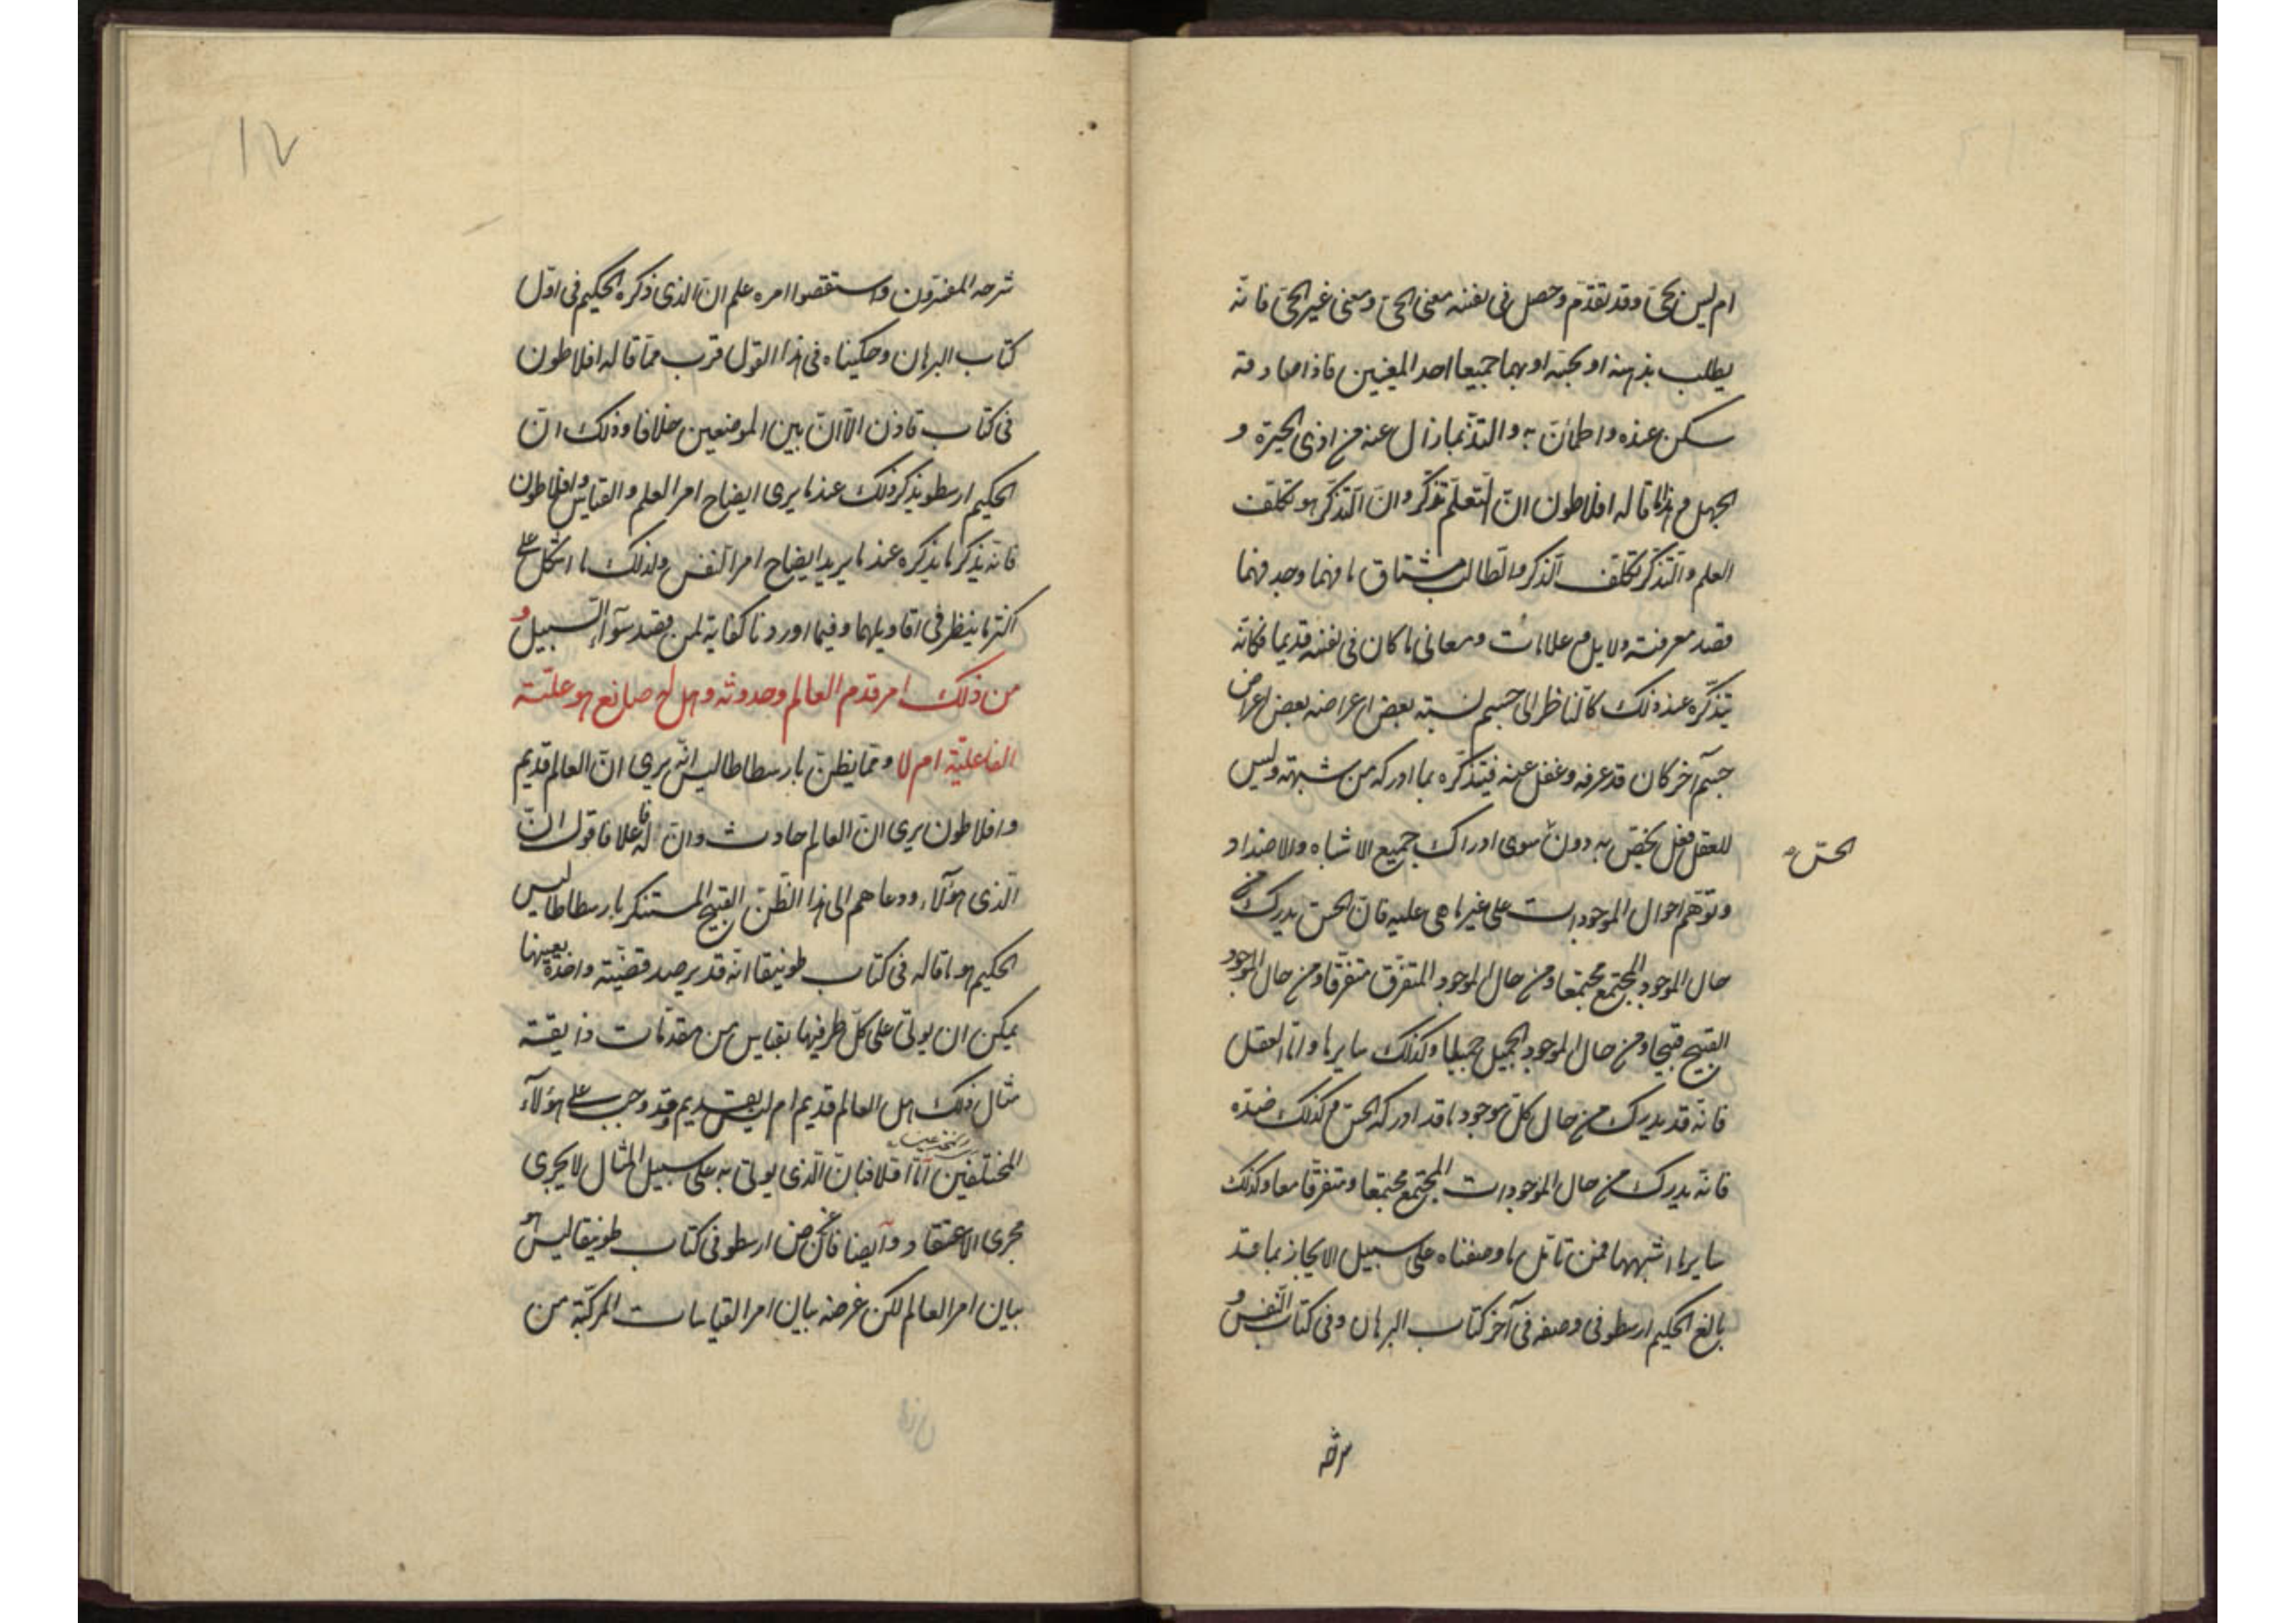 ام ليس بحىّ وقد تقدّم وحصل فى نفسه معنى الحىّ ومعنى غير الحىّ فانّه
يطلب بذهنه او بحسّه او بهما جميعا احد المعنيين فاذا صادفه
سكن عنده واطمأنّ به والتذّ بما زال عنه من اذى الحيرة و
الجهل وهذا ما قاله افلاطون انّ التعلّم تذكّر وانّ التذكّر هو تكلّف
العلم والتذكّر تكلّف الذكر والطالب مشتاق ما فهما وجد فهما
قصد معرفته دلايل وعلامات ومعانى ما كان فى نفسه قديما فكانّه
يتذكّره عند ذلك كالناظر الى جسم نسبته بعض اعراضه بعض اعراض
جسم آخر كان قد عرفه وغفل عنه فيتذكّره بما ادركه من شبهته وليس
للعقل فعل يخصّ به دون سوى ادراك جميع الاشباه والاضداد
الحسّ
وتوهّم احوال الموجودات على غير ما هى عليه فانّ الحسّ يدرك من
حال الموجود المجتمع مجتمعا ومن حال الموجود المتفرّق متفرّقا ومن حال الموجود
القبيح قبيحا ومن حال الموجود الجميل جميلا وكذلك سايرها وامّا العقل
فانّه قد يدرك من حال كلّ موجود ما قد ادركه الحسّ وكذلك ضدّه
فانّه يدرك من حال الموجودات المجتمع مجتمعا ومتفرّقا معا وكذلك
ساير ما اشبهها فمن تامّل ما وصفناه على سبيل الايجاز بما قد
بالغ الحكيم ارسطو فى وصفه فى آخر كتاب البرهان وفى كتاب النفس و
شرحه
شرحه المفسّرون واستقصوا امره علم انّ الذى ذكره الحكيم فى اوّل
كتاب البرهان وحكيناه فى هذا القول قرب ممّا قاله افلاطون
فى كتاب فاذن الّا انّ بين الموضعين خلافا وذلك انّ
الحكيم ارسطو يذكر ذلك عند ما يرى ايضاح امر العلم والقياس وافلاطون
فانّه يذكر ما يذكره عند ما يريد ايضاح امر النفس ولذلك ما اشكل على
اكثر ما ينظر فى اقاويلهما وفيما اوردنا كفاية لمن قصد سواء السبيل و
من ذلك امر قدم العالم وحدوثه وهل له صانع هو علّته
الفاعليّة ام لا وممّا يظنّ بارسطاطاليس انّه يرى انّ العالم قديم
وافلاطون يرى انّ العالم حادث وانّ له فاعلا فاقول انّ
الّذى هؤلاء ودعاهم الى هذا الظنّ القبيح المستنكر بارسطاطاليس
الحكيم هو ما قاله فى كتاب طوبيقا انّه قد يرصد قضيّة واحدة بعينها
يمكن ان يوتى على كلّ طرفيها بقياس من مقدّمات ذايقة
مثال ذلك هل العالم قديم ام ليس بقديم وقد وجب على هؤلاء
المختلفين امّا اوّلا فبانّ الّذى يوتى به على سبيل المثال لا يجرى
مجرى الاعتقاد وايضا فانّ غرض ارسطو فى كتاب طوبيقا ليس هو
بيان امر العالم لكن غرضه بيان امر القياسات المركّبة من